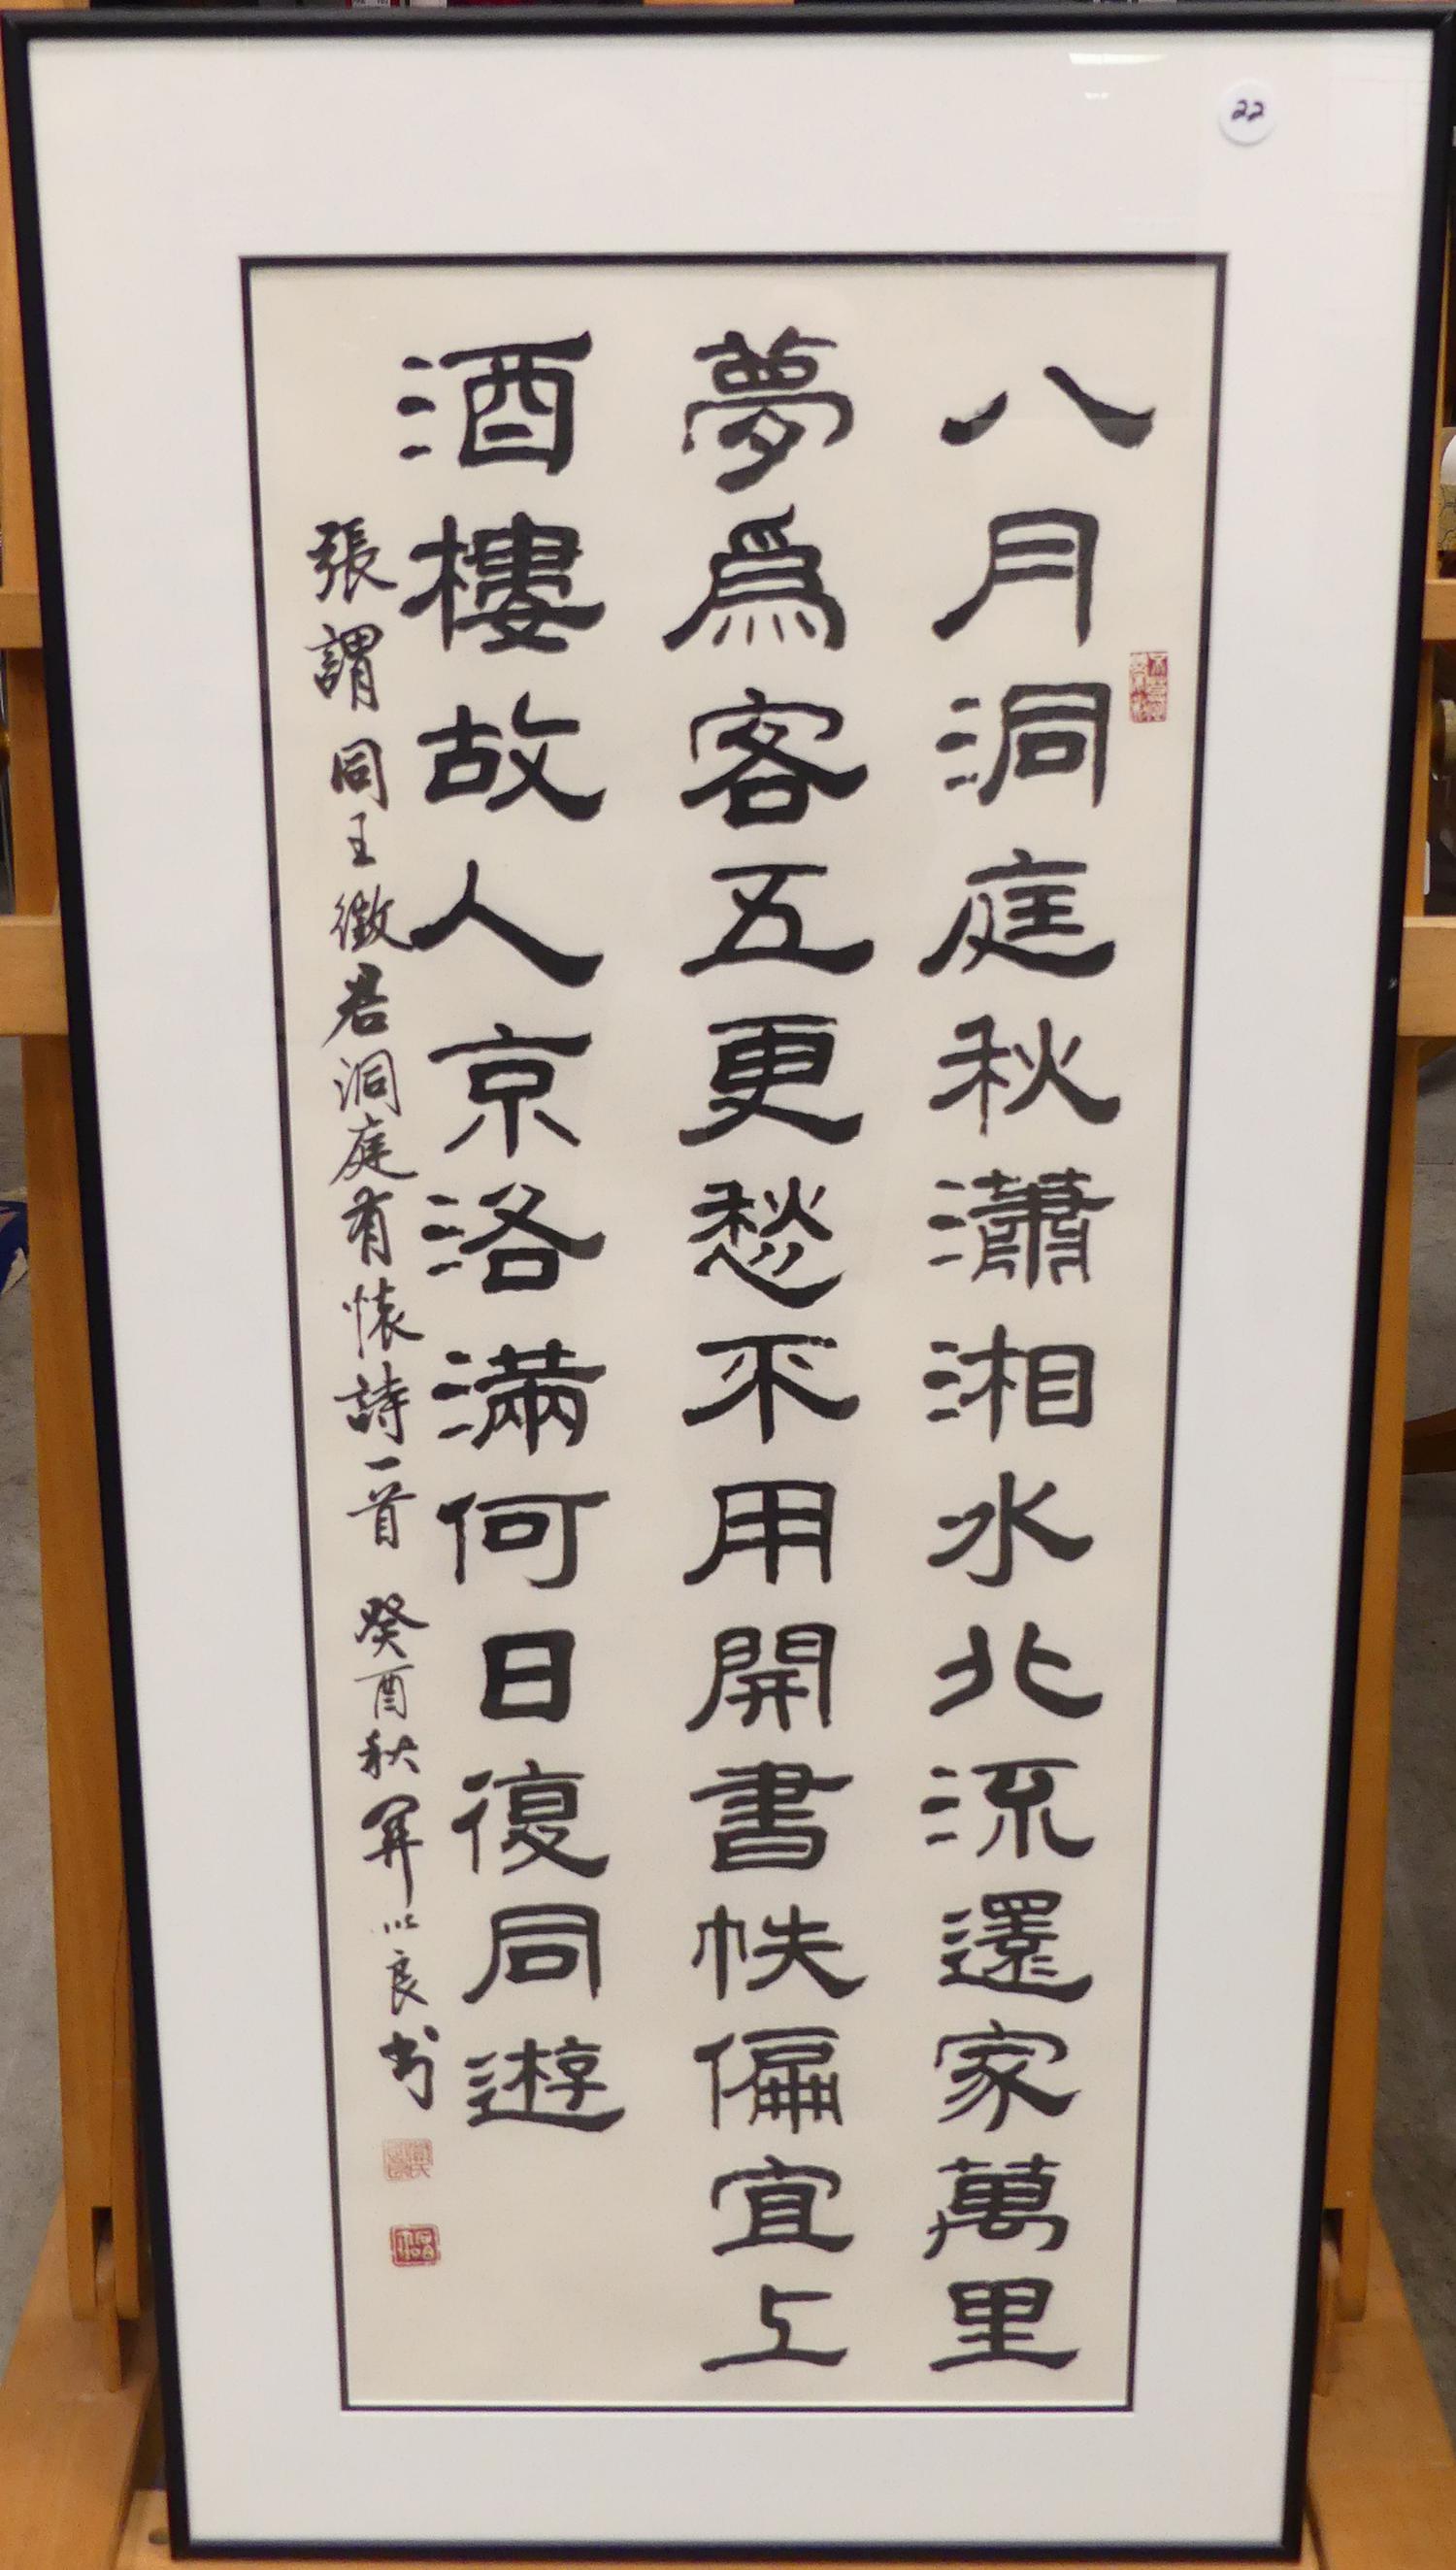 八月洞庭秋瀟湘水北流還家萬里
夢爲客五更愁不用開書帙偏宜上
酒樓故人京洛滿何日復同遊
張謂同王徵君洞庭有懷詩一首 癸酉秋 以良书
22